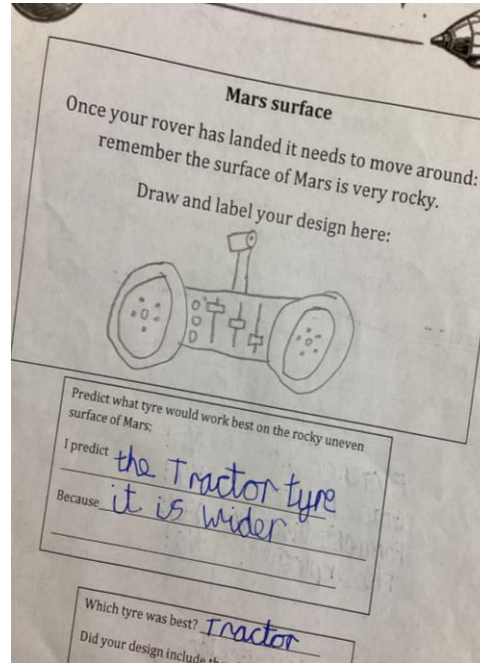 Mars surface
Once your rover has landed it needs to move around:
remember the surface of Mars is very rocky.
Draw and label your design here:
Predict what tyre would work best on the rocky uneven
surface of Mars;
I predict the Tractor tyre
Because it is wider
Which tyre was best? Tractor
Did your design include